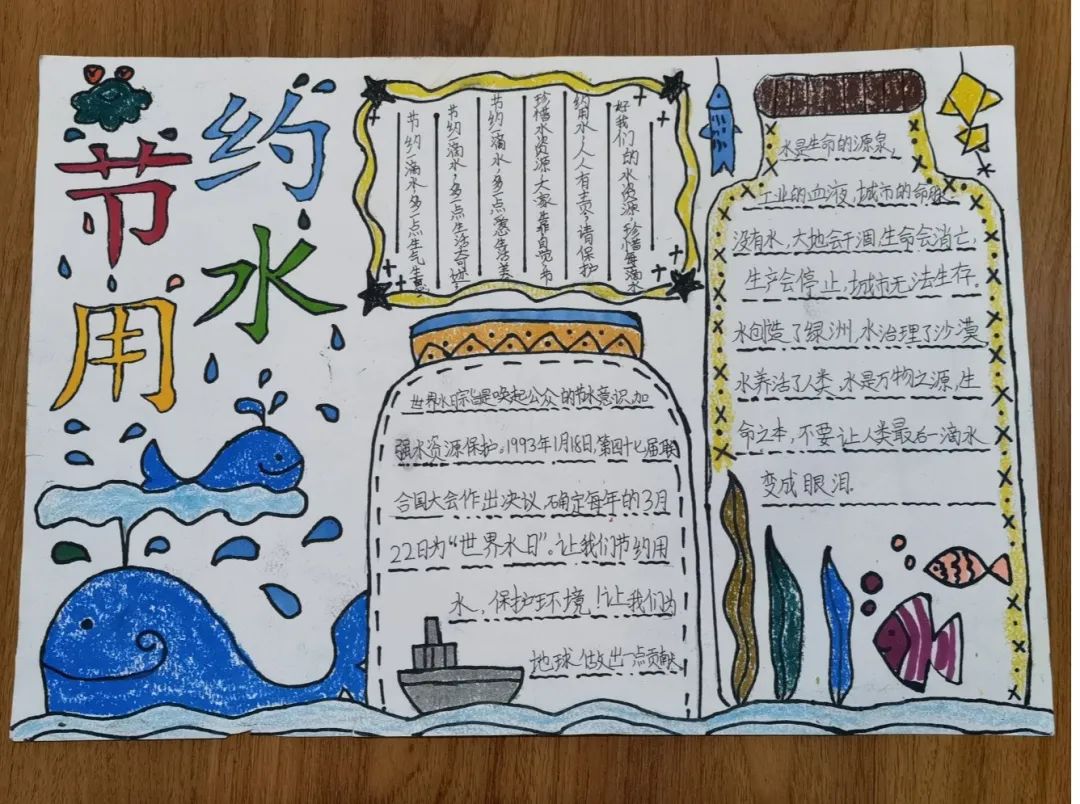 节约
用水
节约一滴水多一点生气生息
节约一滴水，多一点生活奇妙
节约一滴水，多一点爱生活美
珍惜水资源大家靠自觉，节
约用水，人人有责，请保护
好我们的水资源，珍惜每滴水
世界水日宗旨是唤起公众的节水意识，加
强水资源保护。1993年1月18日，第四十七届联
合国大会作出决议，确定每年的3月
22日为“世界水日”。让我们节约用
水，保护环境！让我们为
地球做出一点贡献
水是生命的源泉，
工业的血液，城市的命脉。
没有水，大地会干涸，生命会消亡，
生产会停止，城市无法生存。
水创造了绿洲，水治理了沙漠
水养活了人类，水是万物之源，生
命之本，不要让人类最后一滴水
变成眼泪.